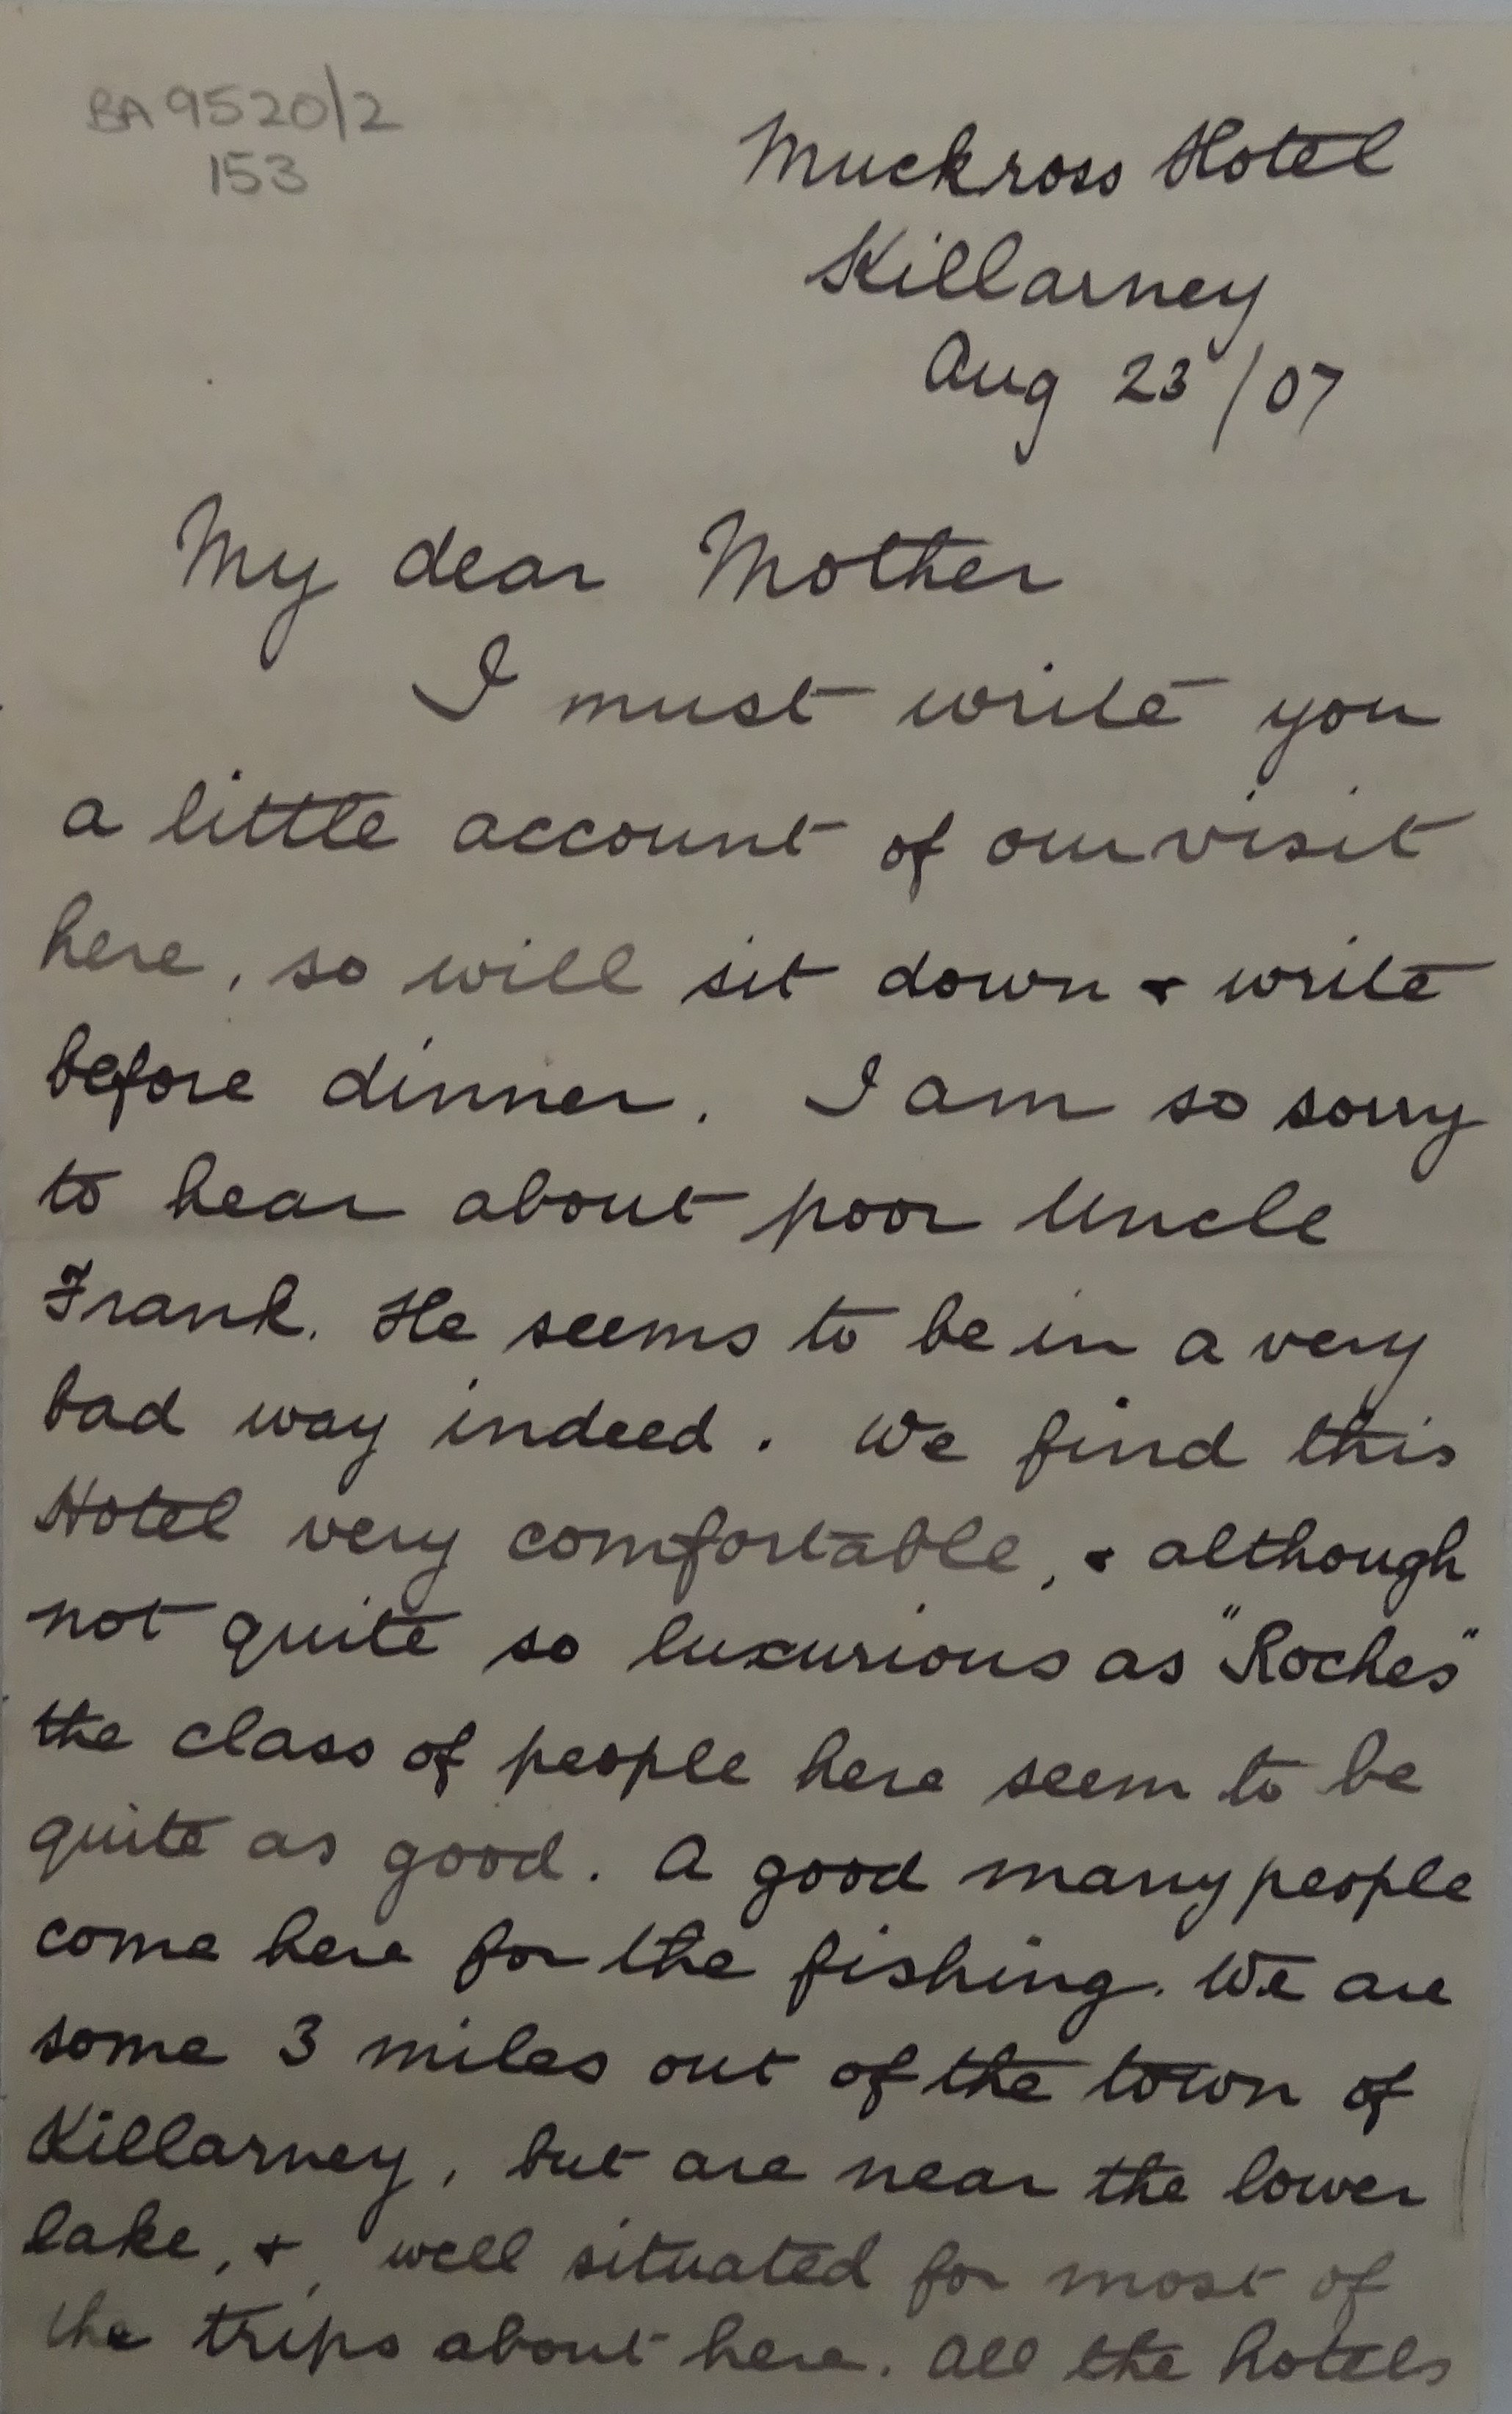 BA 9520/2
153
Muckross Hotel
Killarney
Aug 23/07
My dear Mother
I must write you
a little account of our visit
here, so will sit down & write
before dinner. I am so sorry
to hear about poor Uncle
Frank. He seems to be in a very
bad way indeed. We find this
Hotel very comfortable, & although
not quite so luxurious as "Roches"
the class of people here seem to be
quite as good. A good many people
come here for the fishing. We are
some 3 miles out of the town of
Killarney, but are near the lower
lake, & well situated for most of
the trips about here. All the hotels